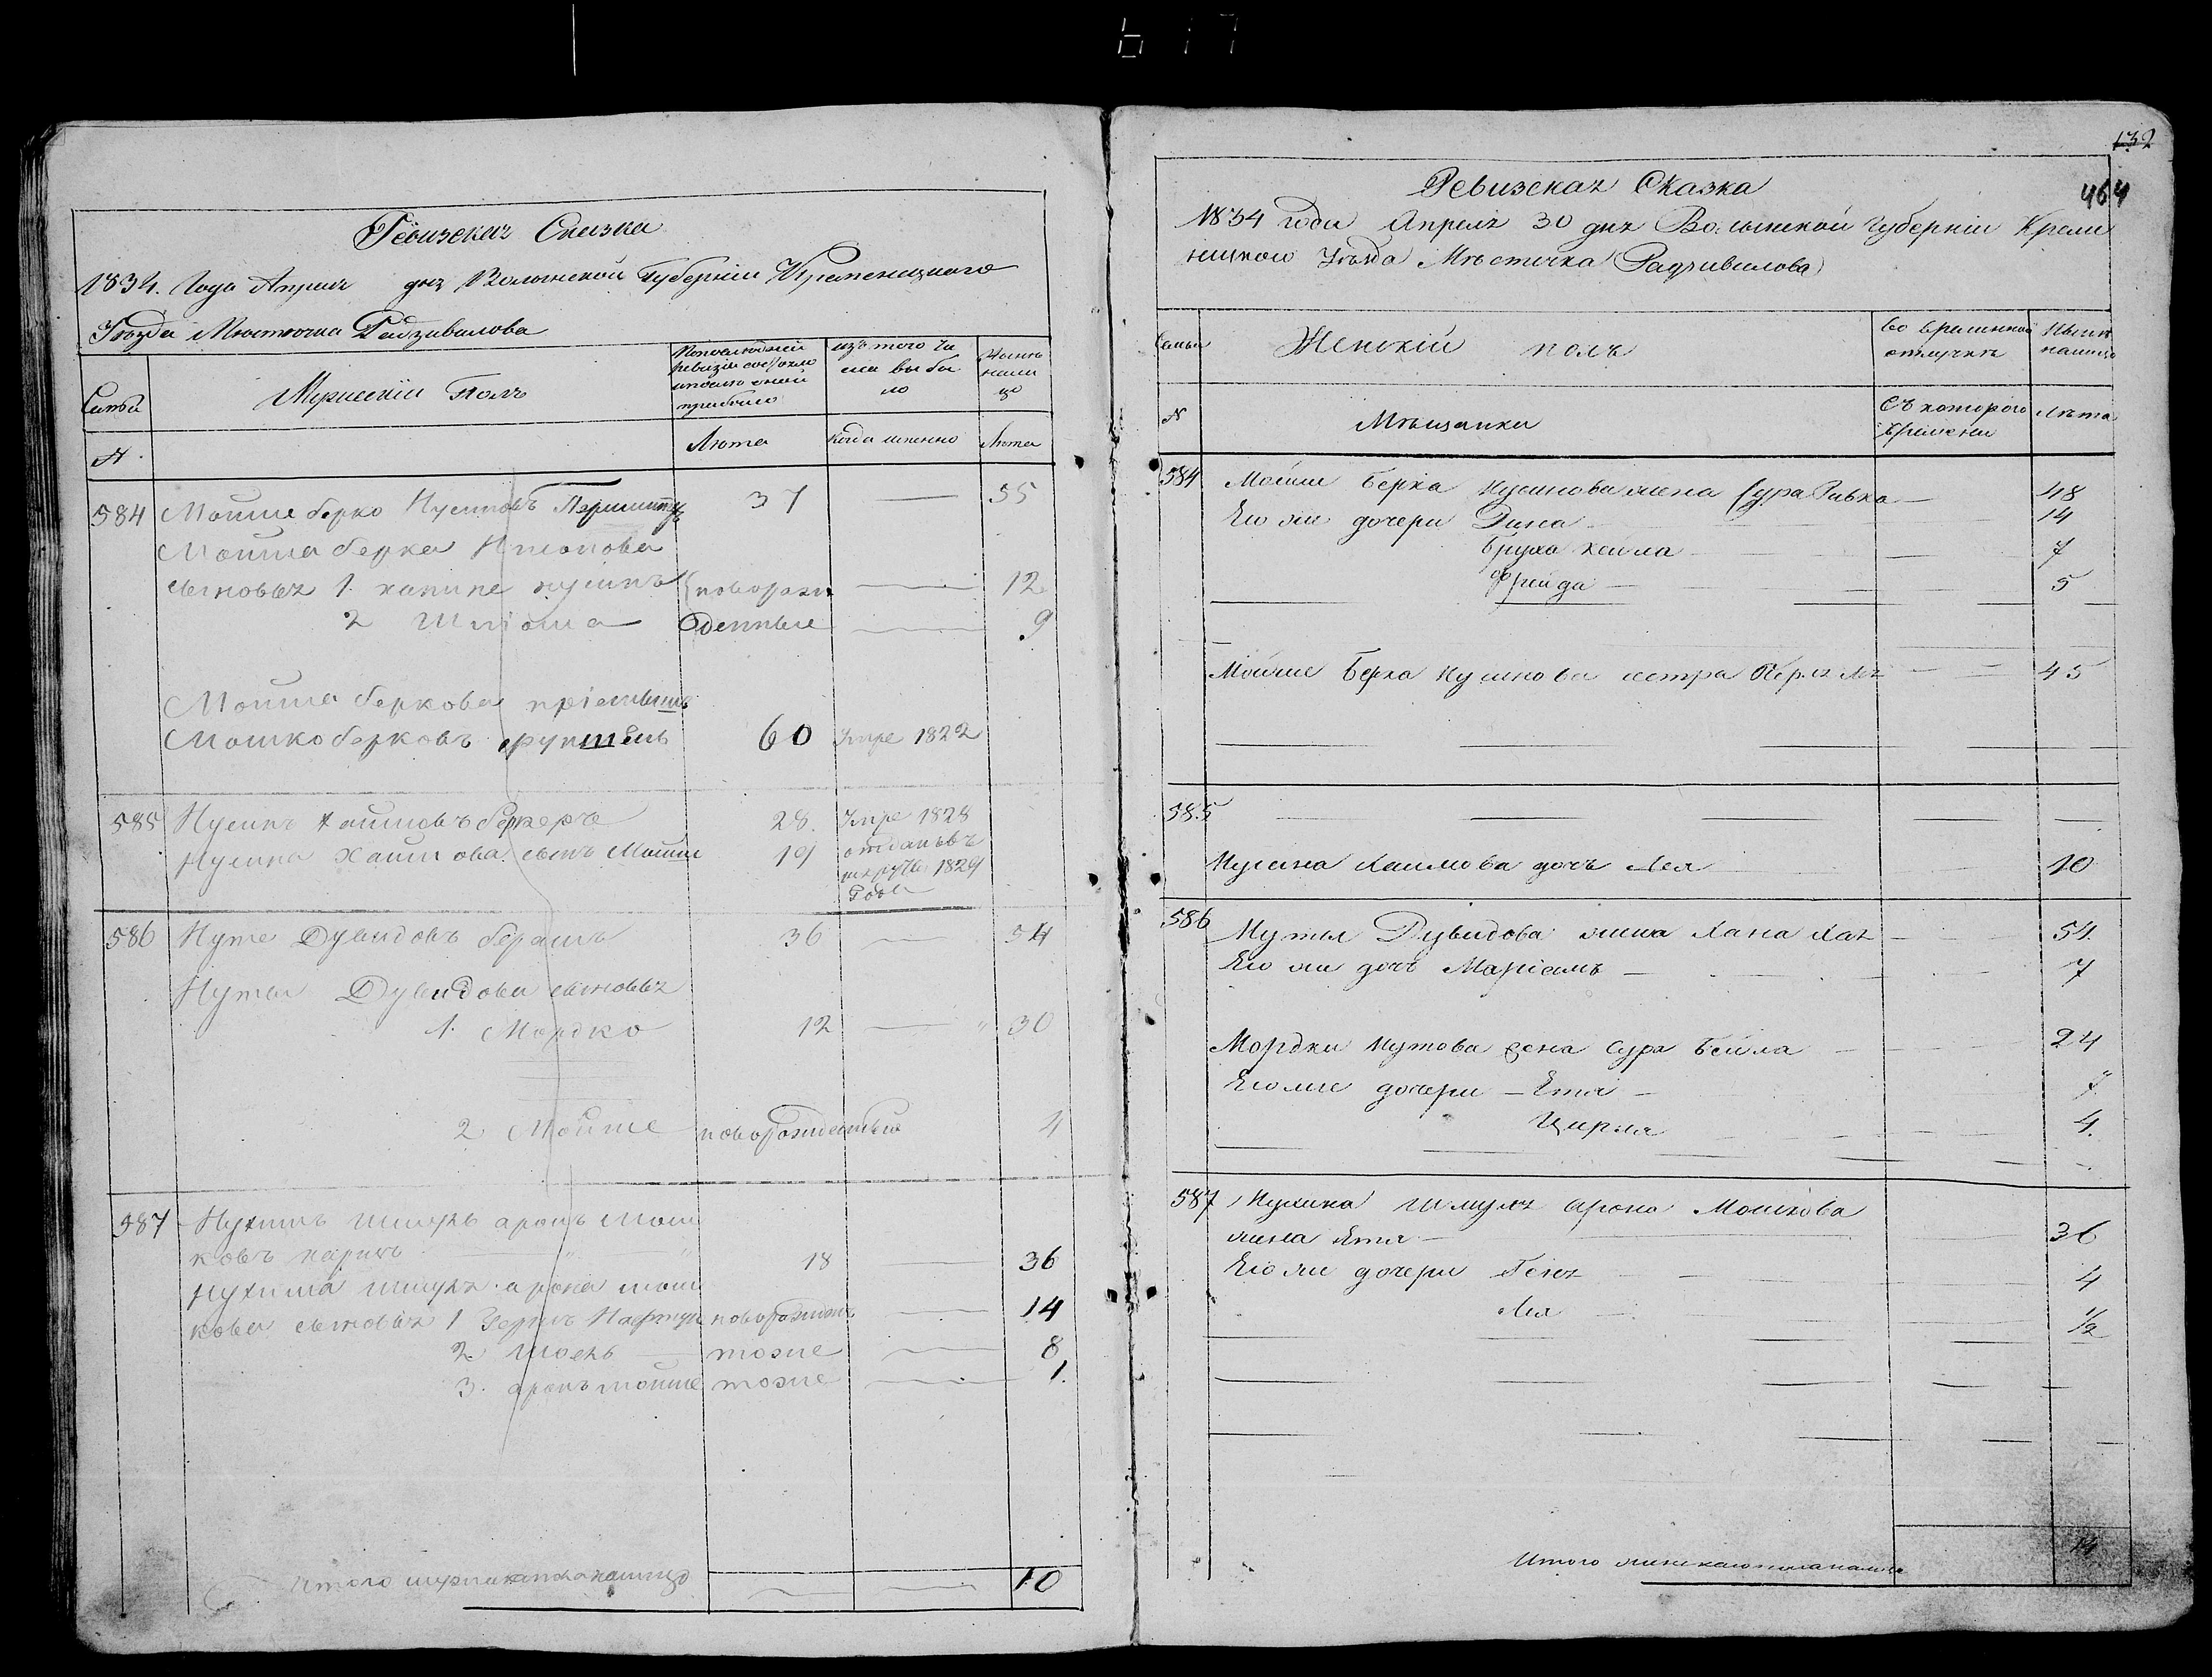 Ревизская Сказка
1834. Года Апреля дня Волынской Губерніи Кременецкаго
Уѣзда Мѣстечка Радзивилова
Семьи
Мужескій Полъ
По последней ревизіи состояло и после оной прибыло
изъ того чи
сла выбы
ло
Нынѣ
нали
цо
№
Лѣта
Когда именно
Лѣта
584 Мошко берко Нусимовъ 37 55
Мошка берка Нусимова
сыновья 1. Нусимъ новорож 12
2 Шліома денные 9
Мошка беркова пріемышъ
Мошко берковъ 60 Умре 1822
585 Нусимъ Хаимовъ берҝеръ 28. Умре 1828
Нусима Хаимова сынъ Мошко 19 отданъ въ
рекруты 1829
Года
586 Нута Дувидовъ 36 54
Нуты Дувидова сыновья
1. Мордко 12 30
2 Мошко новорожденный 4
587 Нухимъ шмуль аронъ Мош
ковъ 18 36
Нухима шмуля арона мош
кова сыновья 1 Гершъ Нафтула новорожден 14
2 тоже 8
3. аронъ мошко тоже 1.
Итого мужеска пола налицо 10
132
464
Ревизская Сказка
1834 года Апреля 30 дня Волынской Губерніи Креме
нецкого Уѣзда Мѣстечка Радзивилова
Семьи
Женскій полъ
во временной
отлучкѣ
Нынѣ
налицо
№
Мѣщанки
Съ котораго
времени
Лѣта
584 Мошка Берка Нусимова жена Сура Ривка 48
Его же дочери Дина 14
Бруха Хейла 7
Фрейда 5
Мошка Берка Нусимова сестра Перля 45
585
Нусима Хаимова дочь Лея 10
586 Нуты Дувидова жена Хана Хая 54.
Его же дочь Маріамъ 7
Мордки Нутова жена Сура Бейла 24
Его же дочери Етя 7
Цирля 4.
587 Нухима шмуля арона Мошкова
жена Етя 36
Его же дочери Геня 4
Лея 1/2
Итого женскаго пола налицо 14